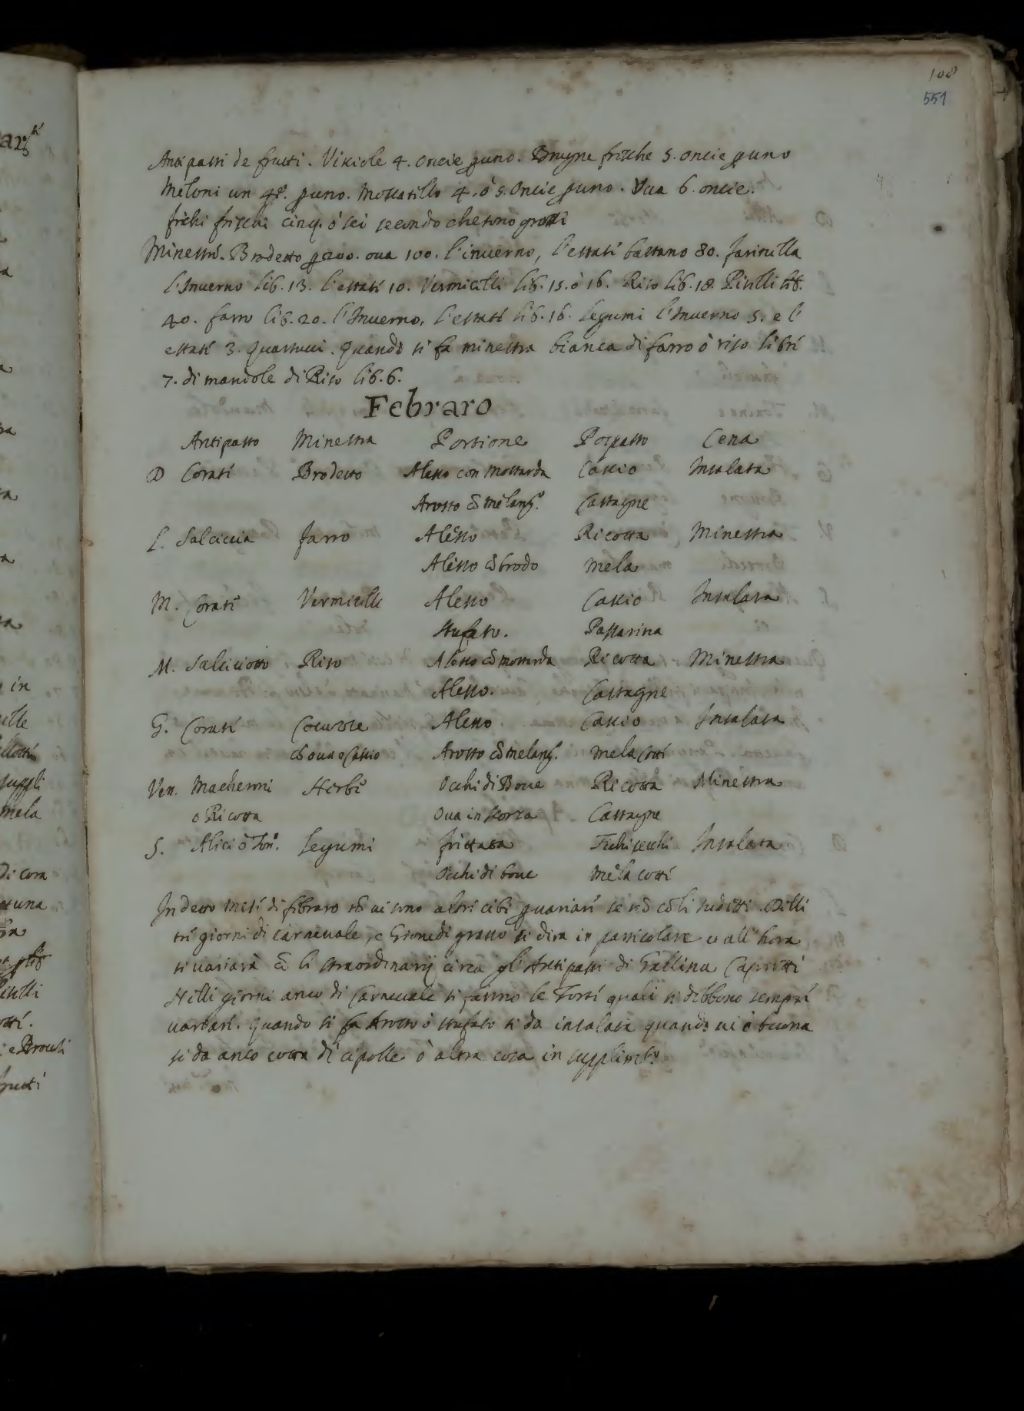 108
551
Antipasti de frutti. Visciole 4. oncie p uno. Brugne frische 5. oncie p uno
Meloni un 4º. p uno. Moscatillo 4. ò 5. Oncie p uno. Uua 6. oncie.
fichi frischi cinq. ò sei secondo che sono grossi
Minestri. Brodetto p 200. oua 100. l'inuerno, l'estati bastano 80. farinella
l'Inuerno lib. 13. l'estati 10. Vermicilli lib. 15. ò 16. Riso lib. 18. Piselli lib.
40. farro lib. 20. l'Inuerno, l'estati lib. 16. legumi l'Inuerno 5. e l'
estati 3. quartucci. Quando si fa minestra bianca di farro ò riso libri
7. di mandole di Riso lib. 6.
Febraro
Antipasto Minestra Portione Pospasto Cena
D Corati Brodetto Alesso con mostarda Cascio Insalata
Arosto cõ melang.º Castagne
L. Salciccia farro Alesso Ricotta Minestra
Alesso cõ brodo Mela
M. Corati Vermicilli Alesso Cascio Insalata
Stufato. Passarina
M. Salciciotto Riso Alesso cõ mostarda Ricotta Minestra
Alesso. Castagne
G. Corati Cocuzze Alesso Cascio Insalata
cõ oua e Cascio Arosto cõ melang.º mela cotti
Ven. Macheroni Herbi Occhi di Boue Ricotta Minestra
o Ricotta Oua in Castagne
S. Alici ò Ton.º legumi frittata Fichi secchi Insalata
Occhi di boue mela cotti
In detto mesi di febraro nõ ui sono altri cibi p uariari se nõ cõ li sudetti. Delli
tri giorni di carneuale, e Giouedi grasso si dira in particolare et all'hora
si uariarà cõ li straordinarij circa gl'Antipasti di Gallina Capretti
Nelli giorni anco di Carneuale si fanno le Torti quali si debbono sempri
uariari. Quando si fa Arosto ò stufato si da insalata quando ui è buona
si da anco cotta di cipolle ò altra cosa in supplimtº